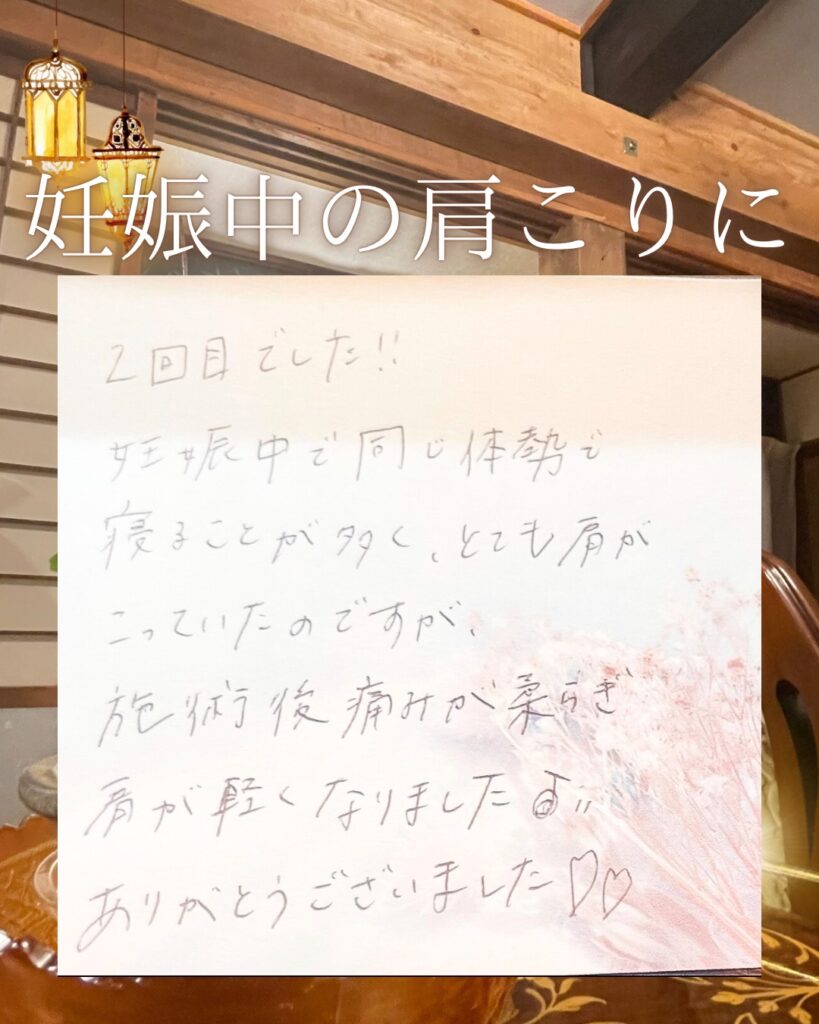 妊娠中の肩こりに
2回目でした!!
妊娠中で同じ体勢で
寝ることが多く、とても肩が
こっていたのですが、
施術後痛みが柔らぎ
肩が軽くなりました
ありがとうございました♡♡